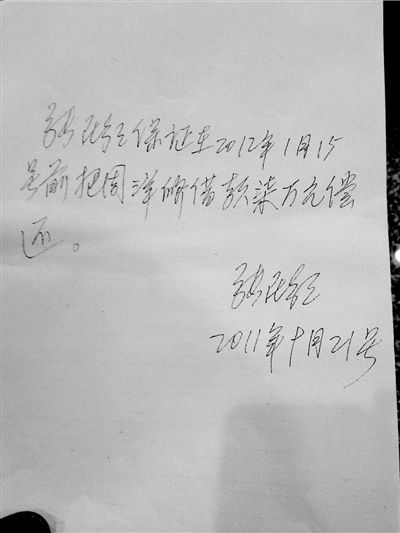 保证在2012年1月15
号前把周洋所借款柒万元偿
还。
2011年十月21号